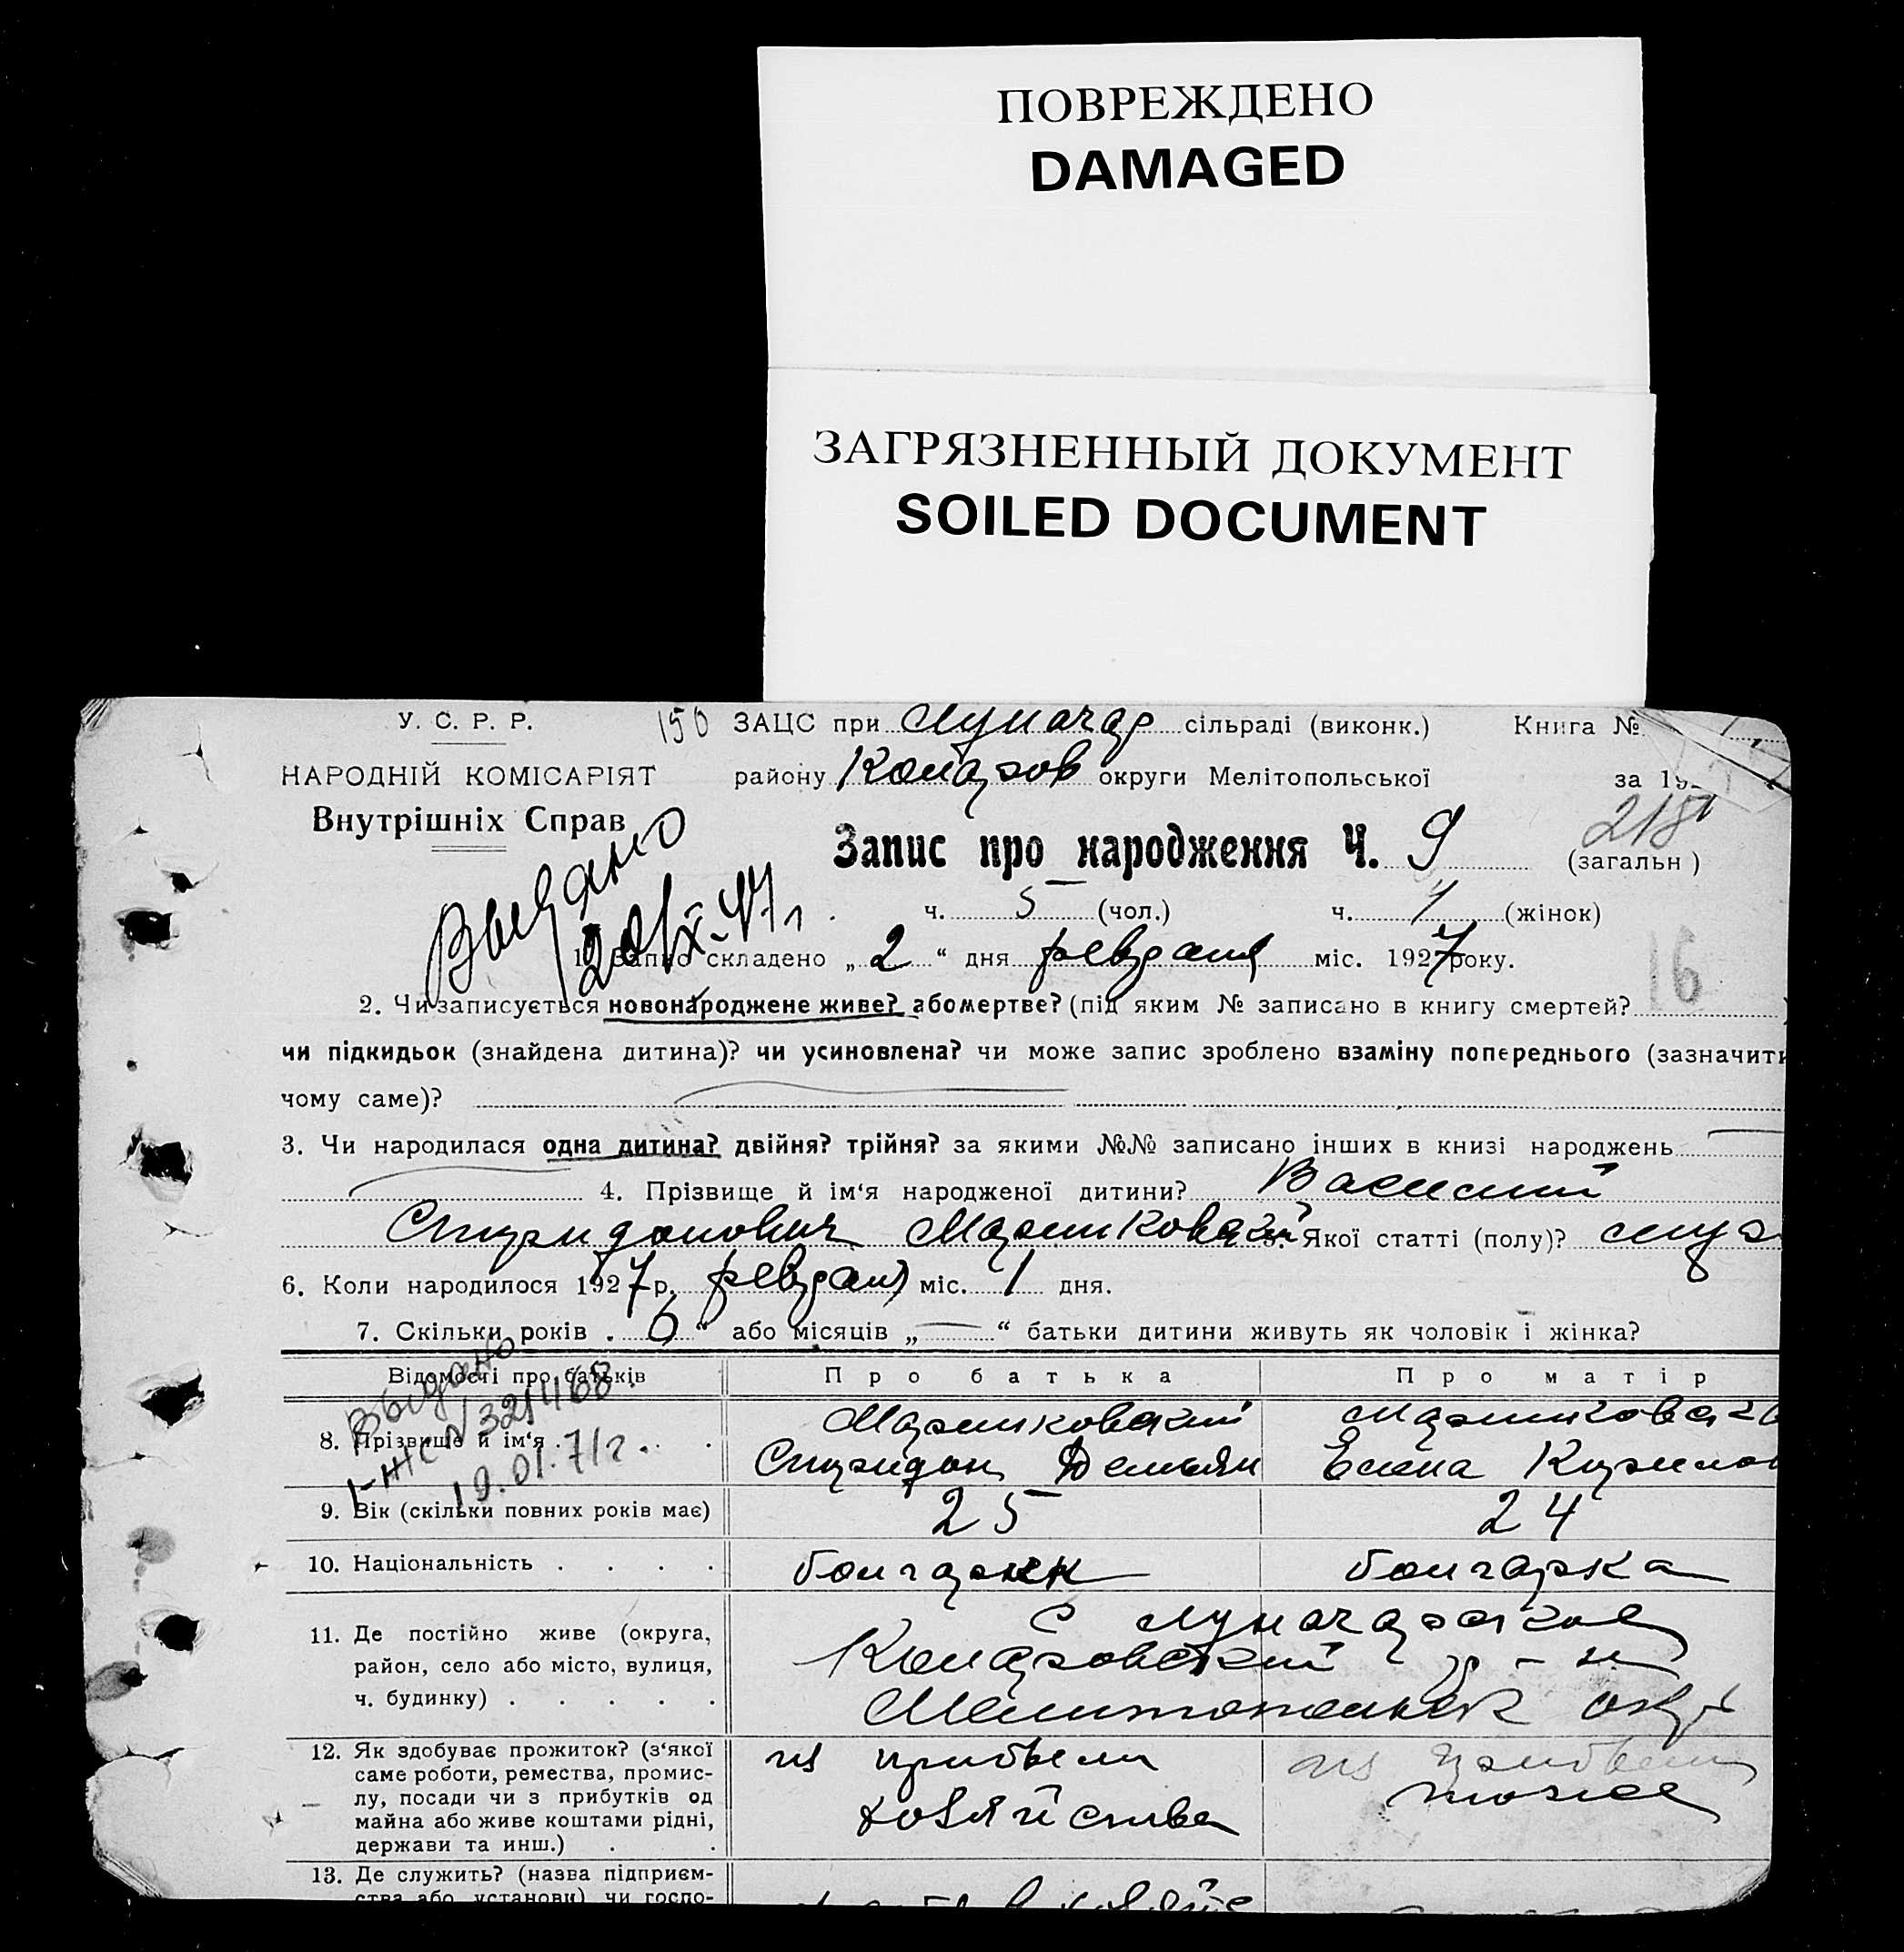 ПОВРЕЖДЕНО
DAMAGED
ЗАГРЯЗНЕННЫЙ ДОКУМЕНТ
SOILED DOCUMENT
У. С. Р. Р. 150 ЗАЦС при Луначар сільраді (виконк.) Книга №
НАРОДНІЙ КОМІСАРІЯТ району округи Мелітопольської за 192
Внутрішніх Справ
218
Запис про народження Ч. 9 (загальн)
Выдано
20/IX-47г.
ч. 5 (чол.) ч. 4 (жінок)
1. Запис складено „2“ дня февраля міс. 1927 року.
16
2. Чи записується новонароджене живе? або мертве? (під яким № записано в книгу смертей?
чи підкидьок (знайдена дитина)? чи усиновлена? чи може запис зроблено взаміну попереднього (зазначити
чому саме)?
3. Чи народилася одна дитина? двійня? трійня? за якими №№ записано інших в книзі народжень
4. Прізвище й ім‘я народженої дитини? Василий
Спиридонович Маринковский 5. Якої статті (полу)? муж
6. Коли народилося 1927 р. февраля міс. 1 дня.
7. Скільки років „6“ або місяців „—“ батьки дитини живуть як чоловік і жінка?
Відомості про батьків Про батька Про матір
Выдано
I-ЖС N 321468
19.01.71г.
8. Прізвище й ім‘я . . . Маринковский Спиридон Демьян Маринковска Елена Кирилов
9. Вік (скільки повних років має) 25 24
10. Національність . . . . болгарин болгарка
11. Де постійно живе (округа, район, село або місто, вулиця, ч. будинку) . . . . . с Луначарское
р-н
Мелитопольск окр
12. Як здобуває прожиток? (з‘якої
саме роботи, ремества, промис-
лу, посади чи з прибутків од
майна або живе коштами рідні,
держави та инш.) . .
из прибыли
хозяйства
из прибыли
тоже
13. Де служить? (назва підприєм-
ства або установи) чи госпо-